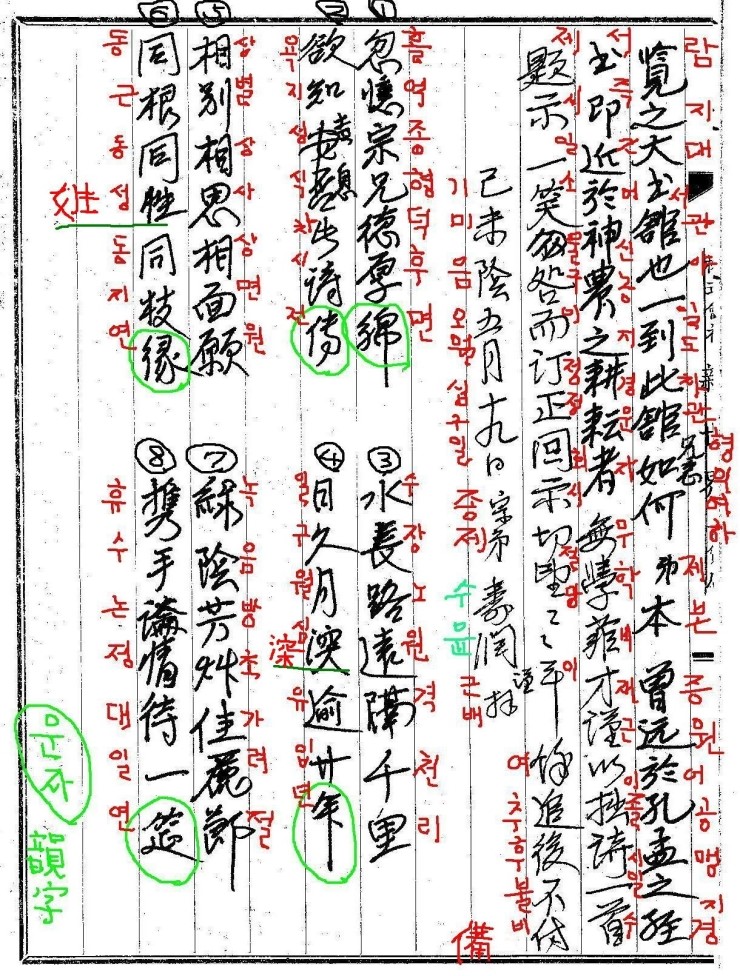 覽之大書舘也一到此舘如何 兄意 弟本 曾远於孔孟之経
람지대 서관야일도차관 형의여하 제본 증원어공맹지경
書即近於神農之耕耘者 無學菲才謹以拙詩一首
서즉근어신농지경운자 무학비재근이졸시일수
示一笑勿咎而訂正回示切望 餘追後不備
제시일소물구이정정회시절망 이 여추후불비
備
己未陰五月十九日 宗弟 壽潤 謹拜
기미음오월십구일 종제 수윤 근배
① 忽憶宗兄德厚綿
홀억종형덕후면
② 欲知 声息 出詩傳
욕지성식차시전
③ 水長路遠隔千里
수장노원격천리
④ 日久月深逾廿年
일구월심유입년
深
⑤ 相別相思相面願
상별상사상면원
⑥ 同根同姓同枝緣
동근동성동지연
姓
⑦ 綠陰芳艸佳麗節
녹음방초가려절
⑧ 携手論情待一筵
휴수논정대일연
운자
韻字